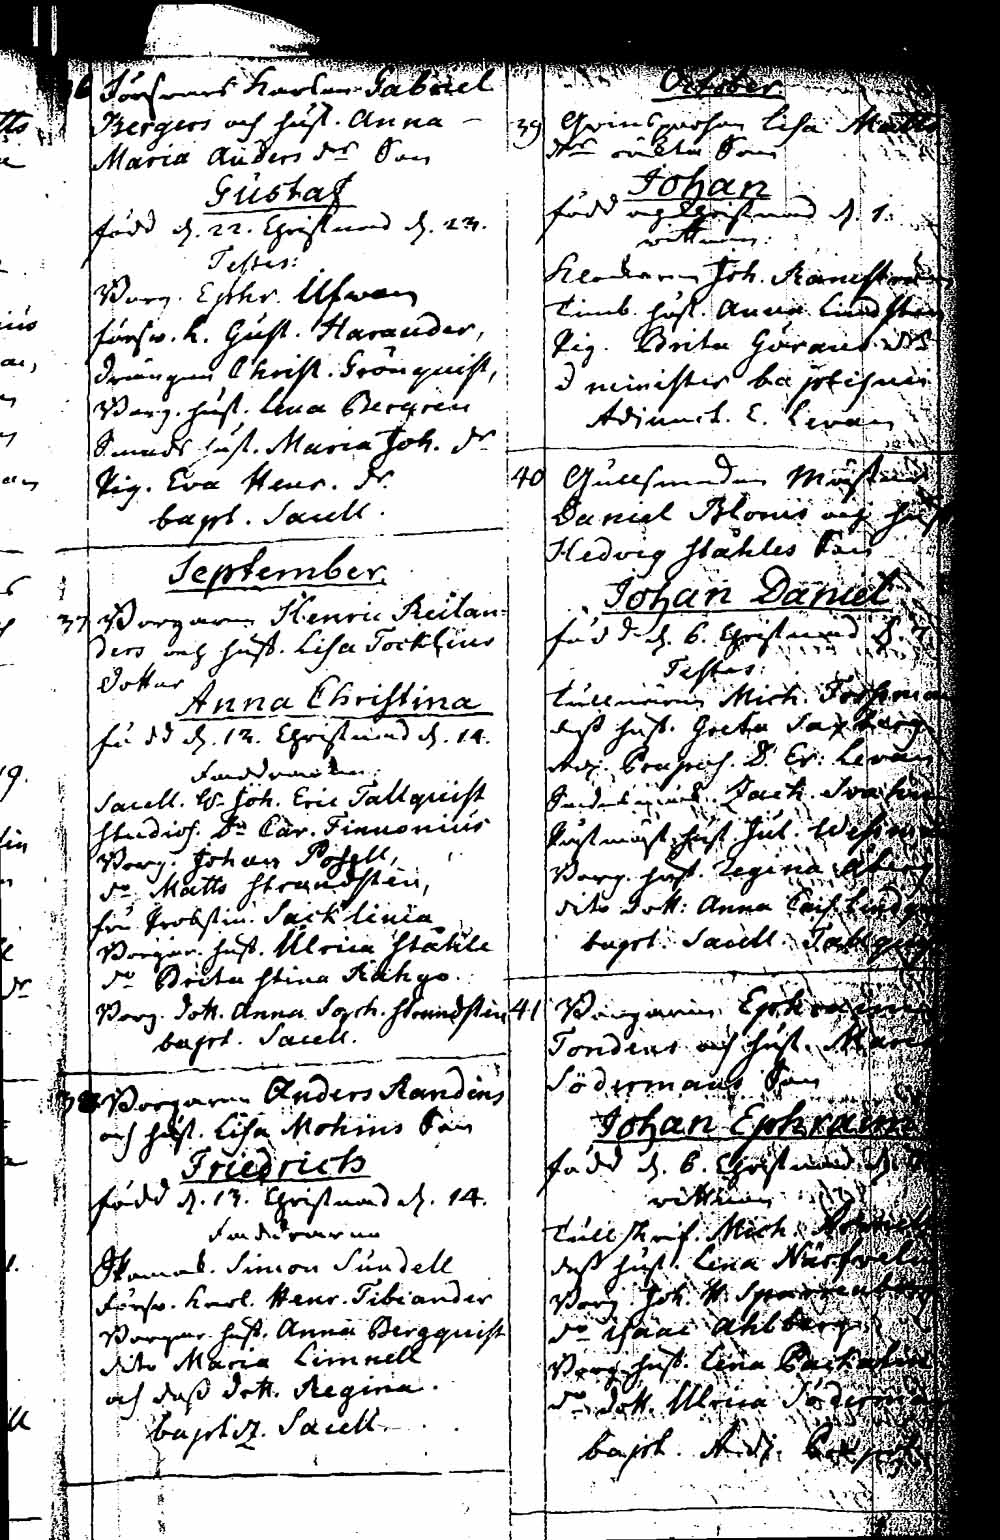 36 Förswars Karlen Gabriel
Bergers och hust. Anna
Maria Anders dr Son
Gustaf
född d. 22. Christnad d. 23.
Testes:
Borg. Ephr. Ulfwan
försw. k. Gust. Harander,
drängen Christ. Grönquist,
Borg. hust. Lena Bergren
Smeds hust. Maria Joh. dr
Pig. Eva Henr. dr.
bapt. Sacell.
September
37 Borgaren Henric Reilan-
ders och hust. Lisa Tocklins
dotter
Anna Christina
född d. 13. Christnad d. 14.
Faddrarne
Sacell. H. Joh. Eric Tallquist
Studios. Dn Car. Finnonius
Borg. Johan Posell,
do Matts Strandsten,
fru Probstin. Sacklinia
Borgar. hust. Ulrica Ståhle
do Brita Stina
Borg. dott. Anna Soph. Strandsten
bapt. Sacell.
38 Borgaren Anders Randins
och hust. Lisa Mohins Son
Friedrich
född d. 13. Christnad d. 14.
Faddrarne
Simon Sundell
Försw. Karl. Henr. Tibiander
Borgar. hust. Anna Bergquist
dito Maria Limnell
och dess dott. Regina.
baptiz. Sacell.
October
39 Lisa Matts
dr oäkta Son
Johan
född och Christnad d. 1.
wittnen:
Klockaren Joh.
Timb. hust. Anna Lindsten
Pig. Brita Görans dr
minister baptismi
Adjunct. E. Levan
40 Gullsmeden Mäster
Daniel Bloms och hust
Hedvig Ståhles Son
Johan Daniel
född d. 6. Christnad d. 7
Testes:
Mich. Forsman
dess hust. Greta
D. Er. Levan
Zach.
hust. Jul. Wessman
Borg. hust. Regina
dito dott: Anna
bapt. Sacell. Tallquist
41 Borgaren Ephraim
Tonders och hust. Maria
Södermans Son
Johan Ephraim
född d. 6. Christnad d.
wittnen
Tullskrif. Mich.
dess hust. Lena
Borg. Joh. H.
do Isaac Ahlberg
Borg. hust. Lena
do dott. Ulrica Söderman
bapt. Adj.